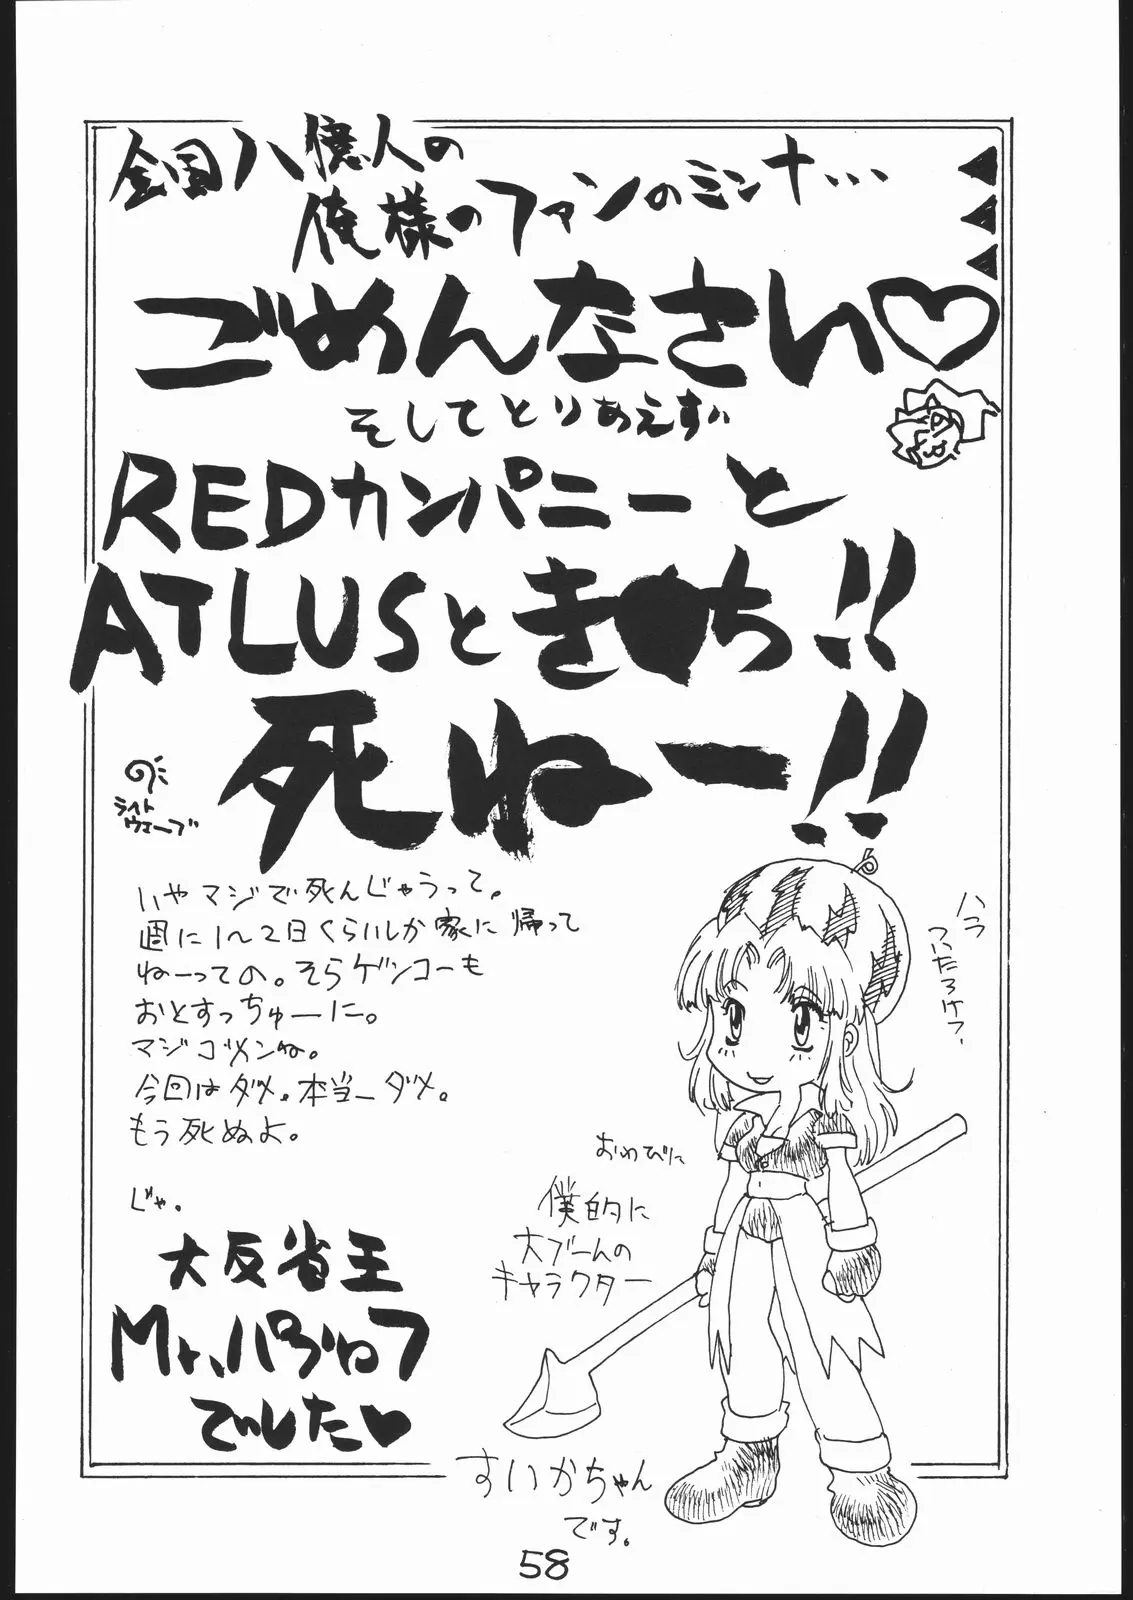 全国八億人の
俺様のファンのミンナ…
ごめんなさい♡
そしてとりあえず
REDカンパニーと
ATLUSとき●ち!!
死ねー!!
ライト
ウェーブ
いやマジで死んじゃうって。
週に1〜2日くらいしか家に帰って
ねーっての。そらゲンコーも
おとすっちゅーに。
マジゴメンね。
今回はダメ。本当ーダメ。
もう死ぬよ。
じゃ。
大反省王
Mr.パブロフ
でした♥
ハラ
おわびに
僕的に
大ブームの
キャラクター
すいかちゃん
です。
58